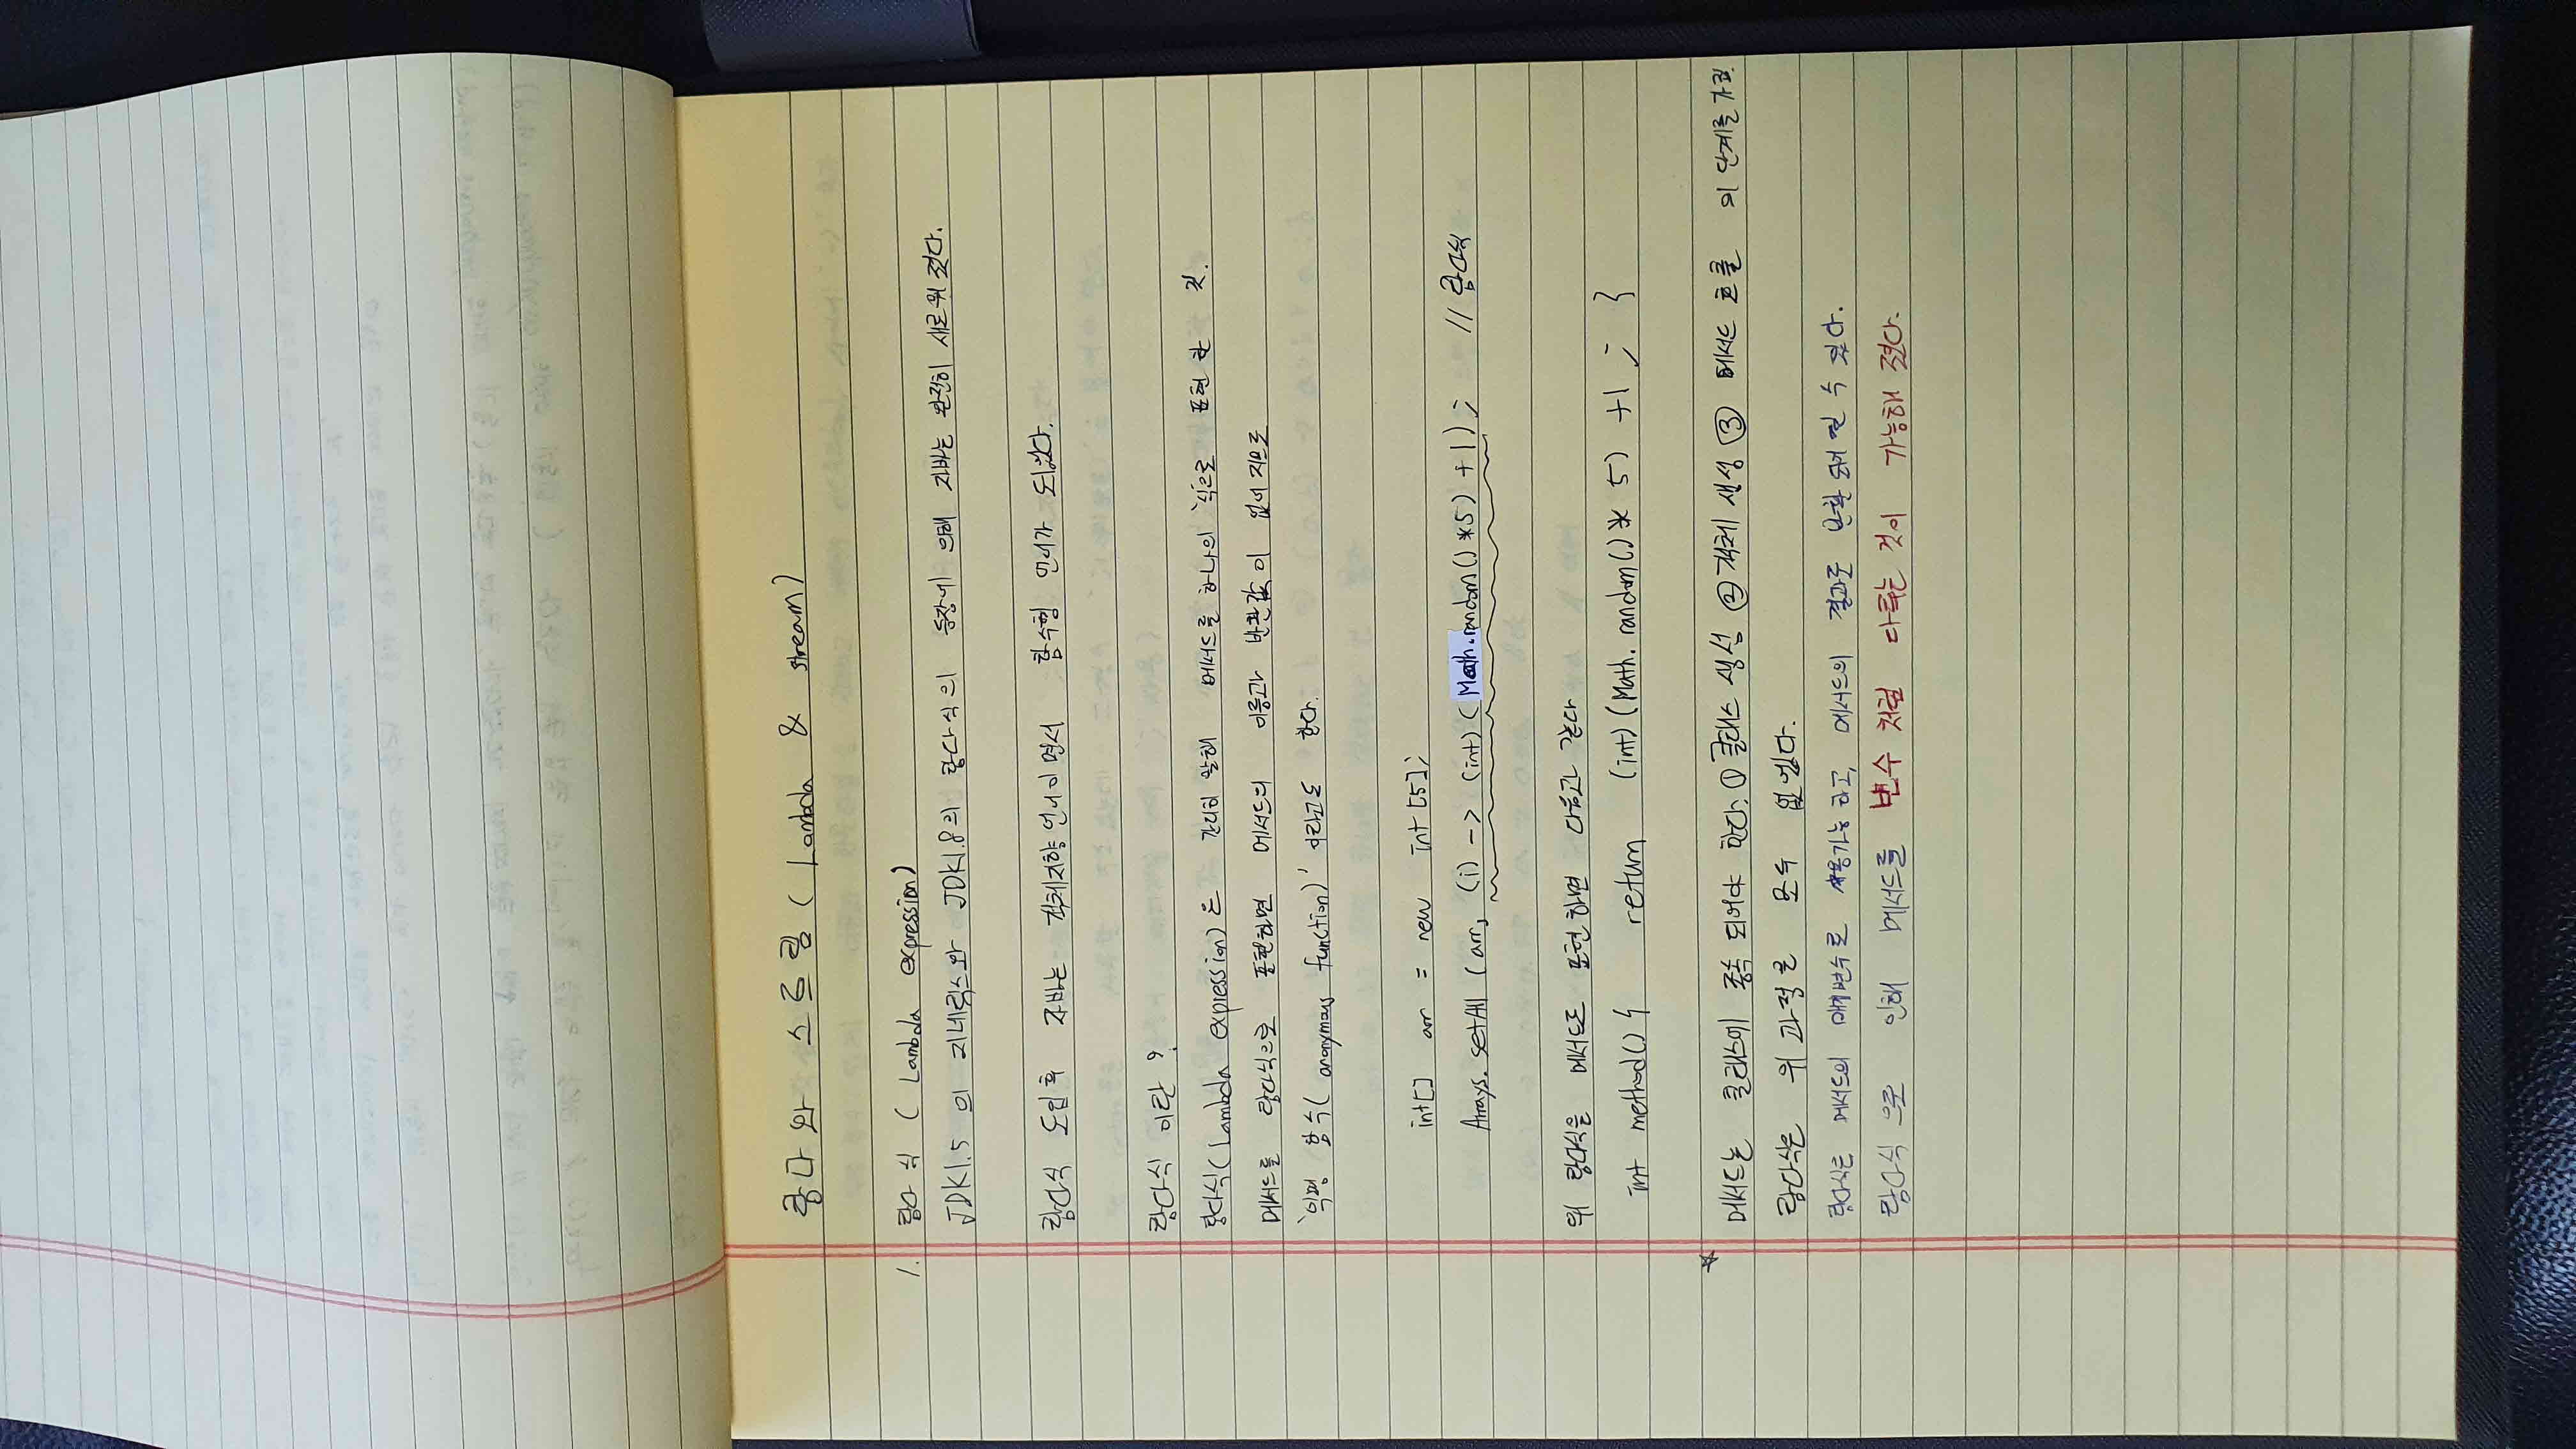 람다와 스트림 ( Lambda & stream )
1. 람다식 ( Lambda expression )
JDK1.5 의 지네릭스와 JDK1.8의 람다식의 등장에 의해 자바는 완전히 새로워 졌다.
람다식 도입 후 자바는 객체지향 언어이면서 함수형 언어가 되었다.
람다식 이란 ?
람다식( Lambda expression )은 간단히 말해 메서드를 하나의 '식'으로 표현 한 것.
메서드를 람다식으로 표현하면 메서드의 이름과 반환값이 없어 지므로
'익명 함수( anonymous function )' 이라고도 한다.
int[] arr = new int [5];
Arrays. setAll (arr, (i) -> (int) (Math.random() *5) +1); // 람다식
위 람다식을 메서드로 표현하면 다음과 같다
int method() { return (int) (Math. random() * 5) +1 ; }
☆ 메서드는 클래스에 종속 되어야 한다. ① 클래스 생성 ② 객체 생성 ③ 메서드 호출 의 단계를
람다식은 위 과정을 모두 없앴다.
람다식은 메서드의 매개변수로 사용가능 하고, 메서드의 결과로 반환 되어 질 수 있다.
람다식 으로 인해 메서드를 변수 처럼 다루는 것이 가능해 졌다.